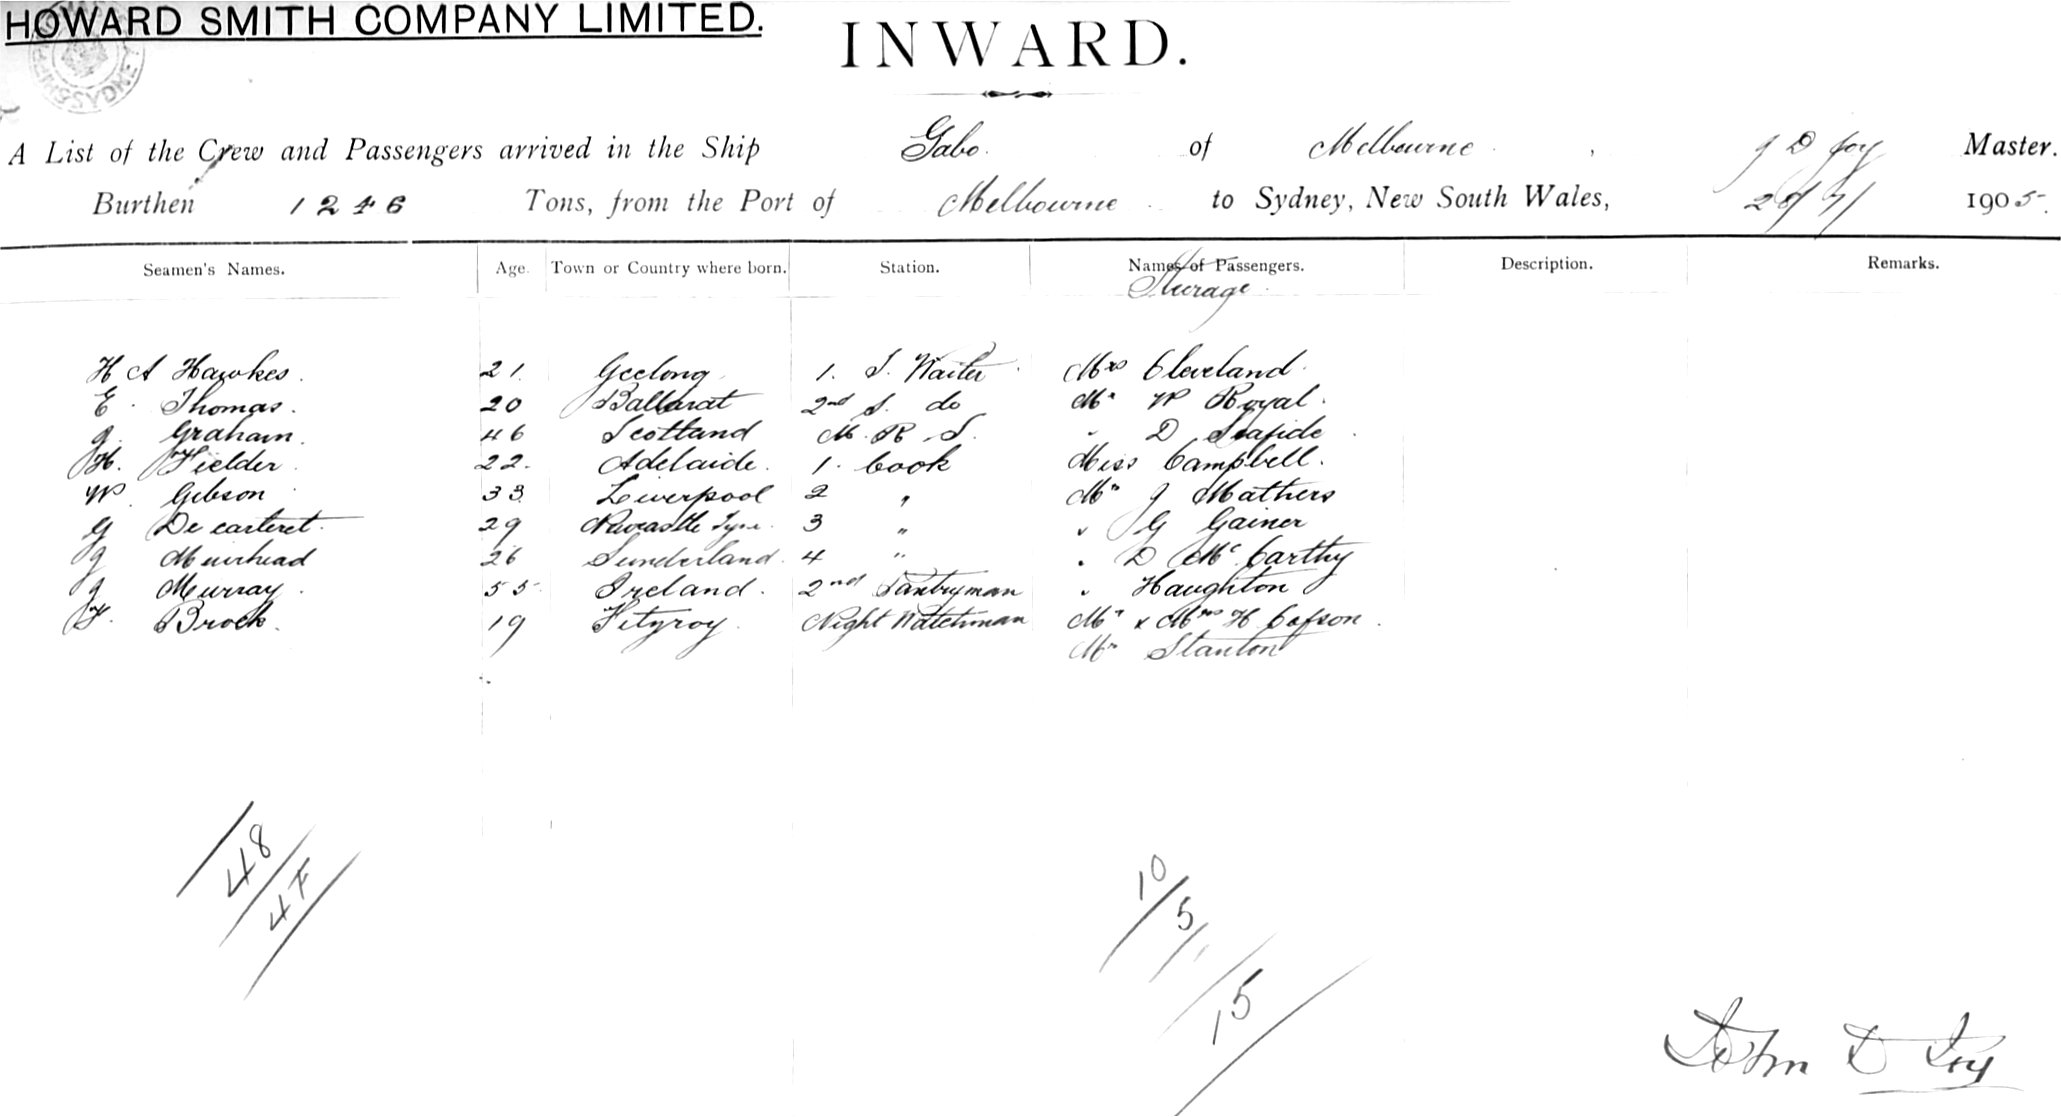 HOWARD SMITH COMPANY LIMITED.
INWARD.
A List of the Crew and Passengers arrived in the Ship Gabo of Melbourne, J D Joy Master.
Burthen 1246 Tons, from the Port of Melbourne to Sydney, New South Wales, 1905.
Seamen's Names. Age. Town or Country where born. Station. Names of Passengers. Description. Remarks.
Steerage
H A Hawkes. 21. Geelong 1. S. Waiter Mrs Cleveland.
E. Thomas. 20 Ballarat 2nd S. do Mr W Royal.
J. Graham. 46 Scotland M. R. S. " D
H. Fielder. 22. Adelaide. 1. Cook Miss Campbell.
W. Gibson 33 Liverpool 2 " Mr J Mathers
G De Carteret. 29 Newcastle Tyne. 3 " " G Gainer
J Muirhead 26 Sunderland. 4 " " D McCarthy
J Murray. 55 Ireland. 2nd Pantryman " Haughton
F. Brock. 19 Fitzroy. Night Watchman Mr & Mrs H.
Mr Stanton
48
47
10
5
15
John D Joy